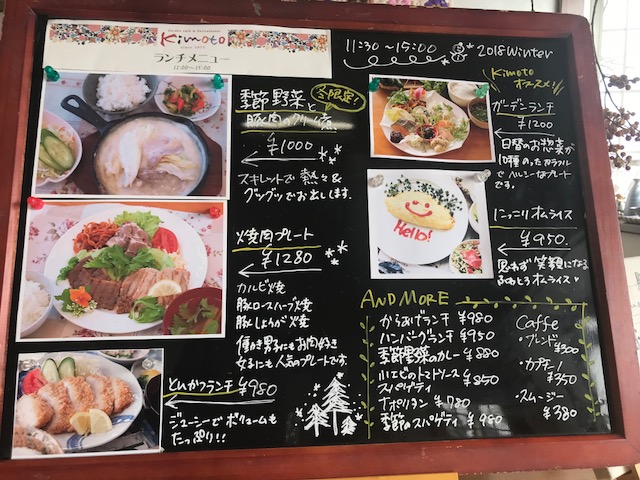 Kimoto
since 1975
ランチメニュー
11:00〜15:00
11:30〜15:00
2018 Winter
季節野菜と
豚肉のクリーム煮
冬限定!
¥1000
スキレットで熱々&
グツグツでお出しします。
焼肉プレート
¥1280
カルビ焼
豚ロースハーブ焼
豚しょうが焼
働き男子にもお肉好き
女子にも人気のプレートです。
とんかつランチ ¥980
ジューシーでボリュームも
たっぷり!!
Kimoto
オススメ!
ガーデンランチ
¥1200
日替のお惣菜が
10種のったカラフル
でヘルシーなプレート
です。
にっこりオムライス
¥950.
思わず笑顔になる
ふわとろオムライス♥
Hello!
AND MORE
からあげランチ ¥980
ハンバーグランチ ¥950
季節野菜のカレー ¥880
小エビのトマトソース
スパゲティ ¥850
ナポリタン ¥780
季節のスパゲティ ¥980
Caffe
・ブレンド
¥300
・カプチーノ
¥350
・スムージー
¥380